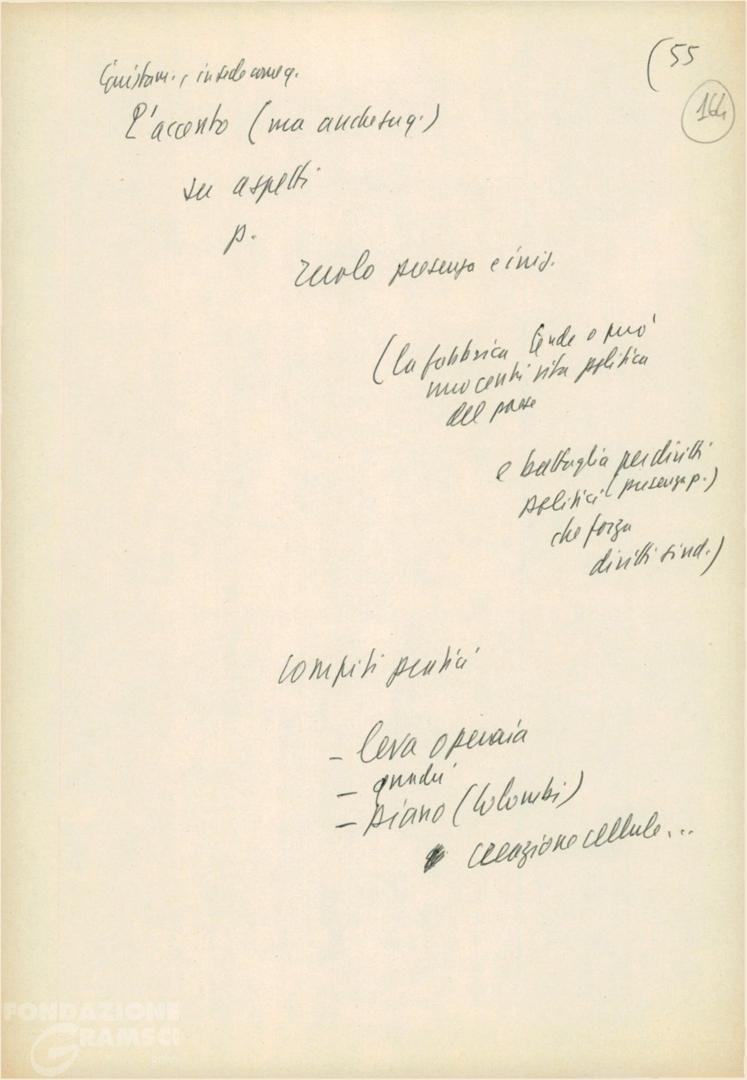 (55
164
Giustam., in sede cong.
L'accento (ma anche su q.)
su aspetti
p.
ruolo presenza e iniz.
(la fabbrica tende o può
vita politica
del paese
e battaglia per diritti
politici (presenza p.)
che forza
diritti sind.)
compiti pratici
- leva operaia
- quadri
- piano (Colombi)
creazione cellule...
FONDAZIONE
GRAMSCI